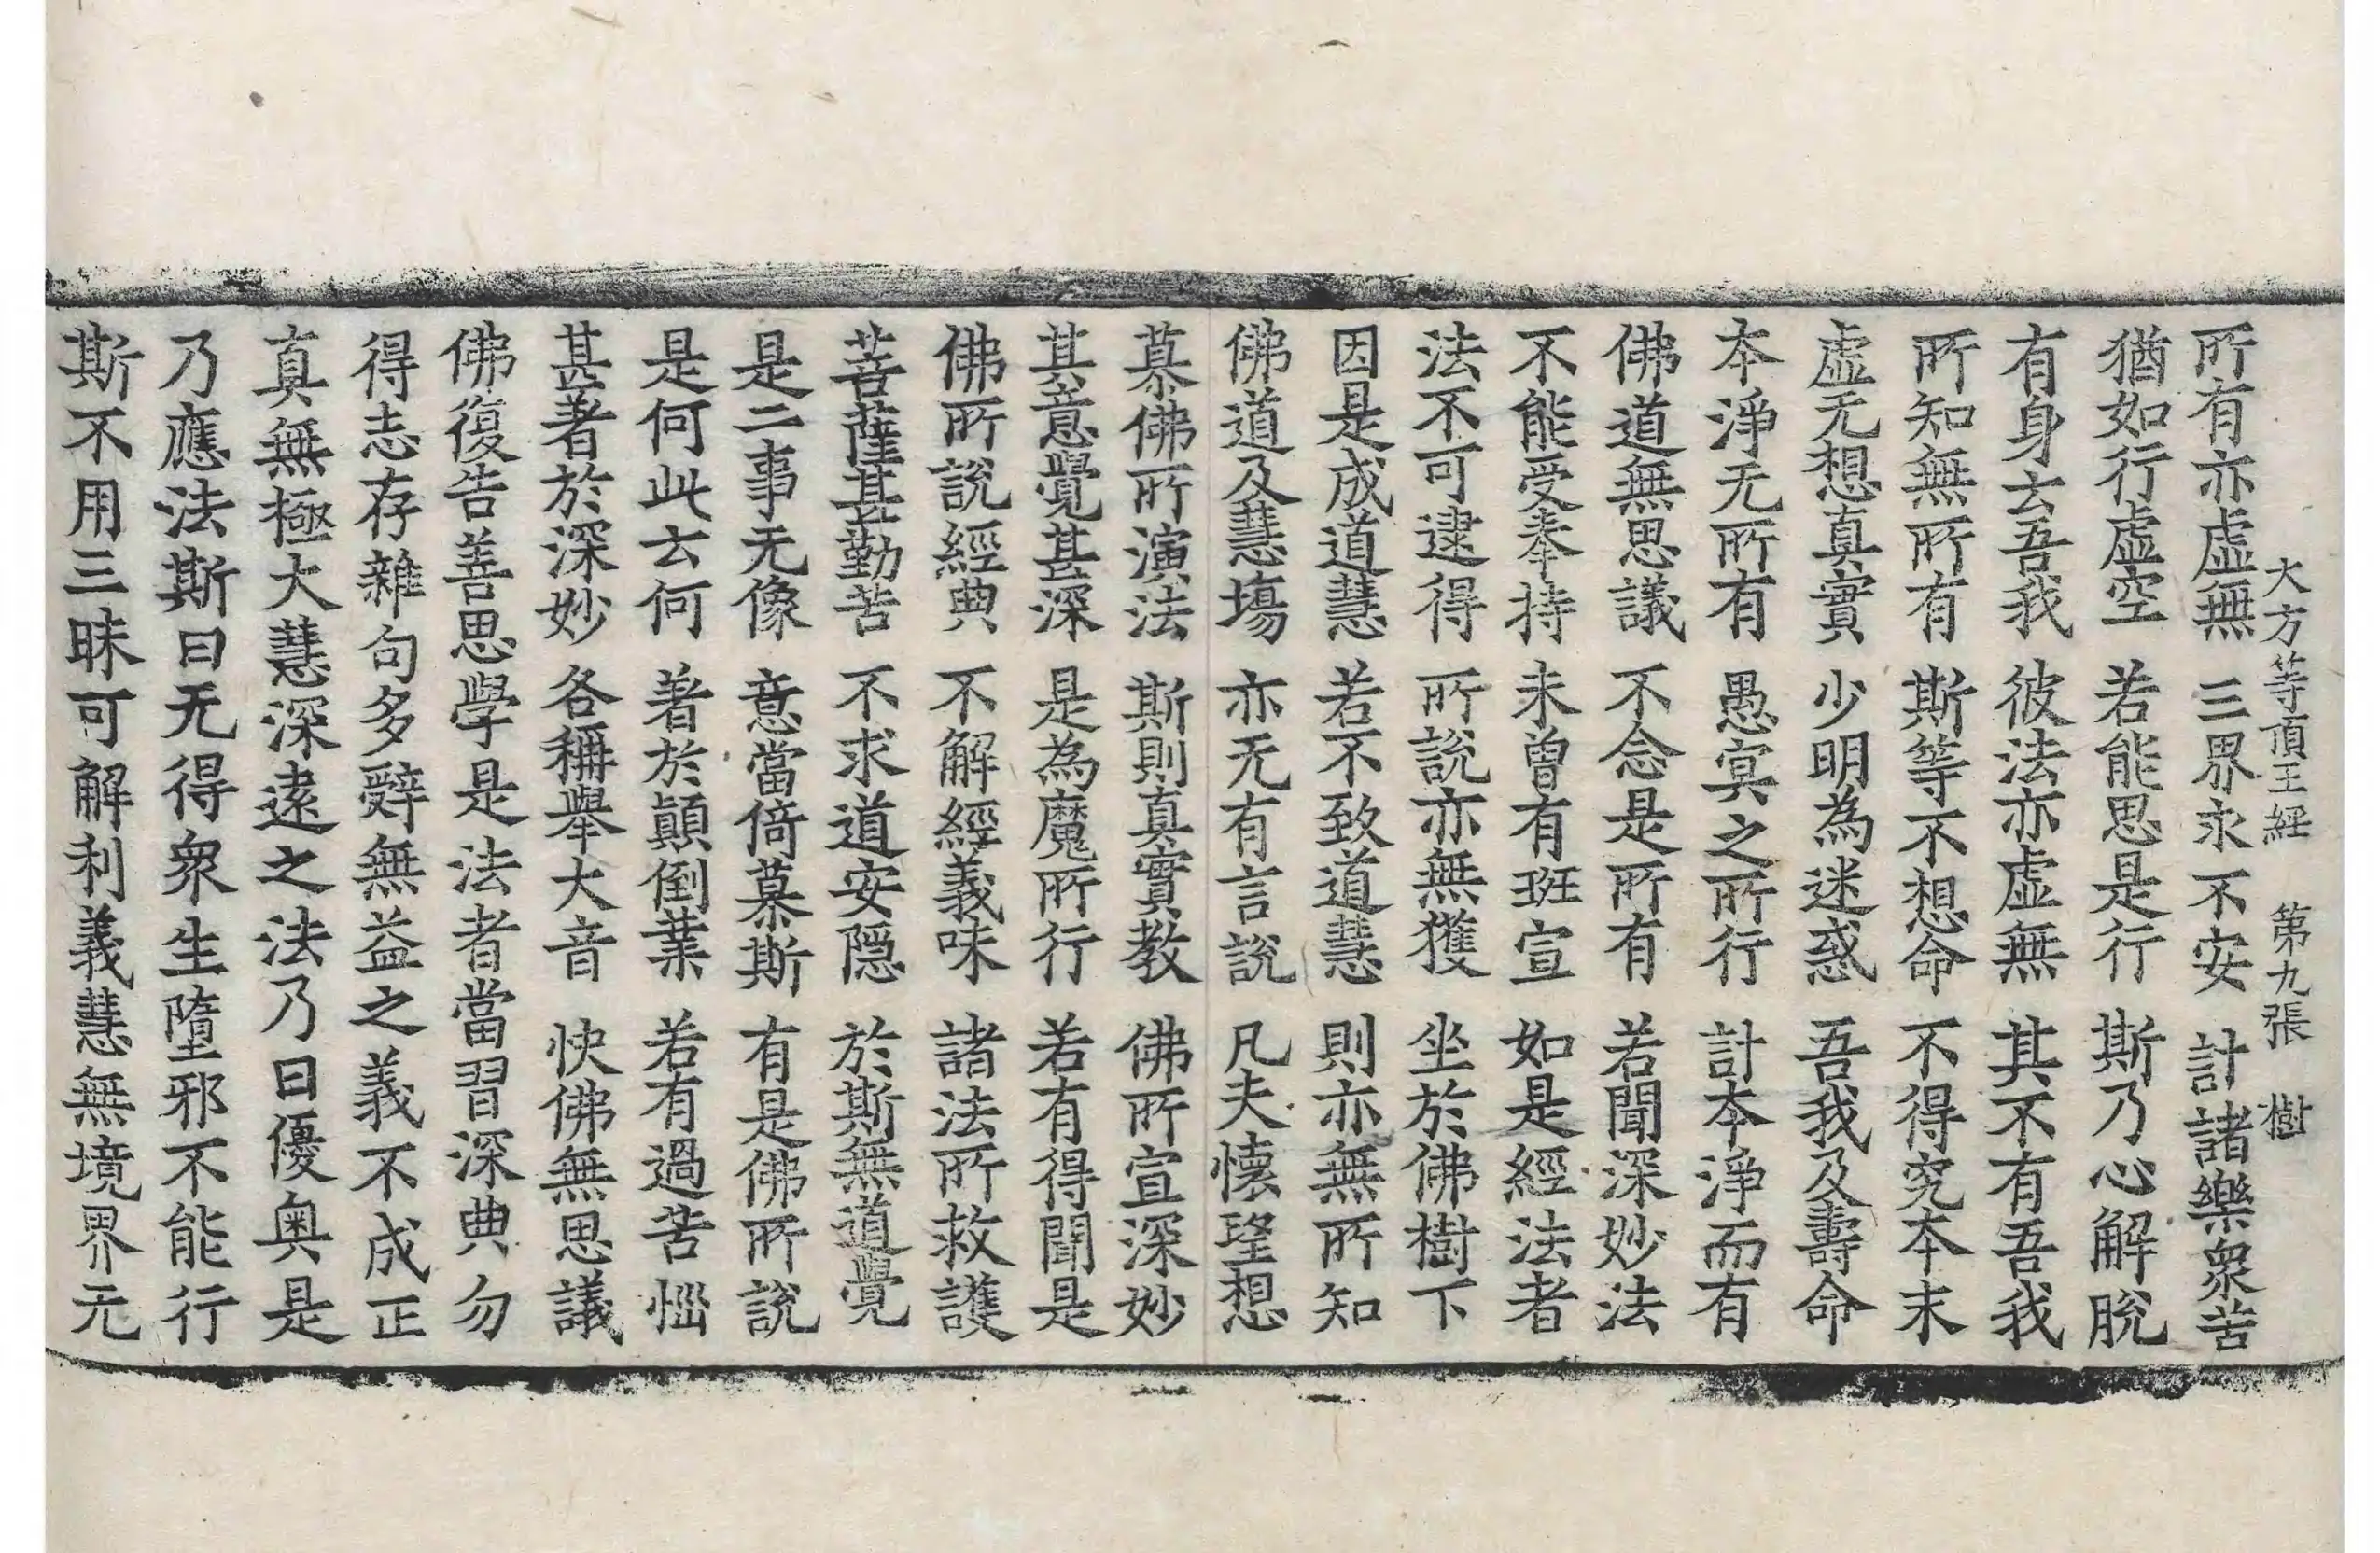 大方等頂王經　第九張　樹
所有亦虛無　三界永不安　計諸樂衆苦
猶如行虛空　若能思是行　斯乃心解脫
有身去吾我　彼法亦虛無　其不有吾我
所知無所有　斯等不想命　不得究本末
虛无想真實　少明為迷惑　吾我及壽命
本淨无所有　愚㝠之所行　計本淨而有
佛道無思議　不念是所有　若聞深妙法
不能受奉持　未曾有班宣　如是經法者
法不可逮得　所說亦無獲　坐於佛樹下
因是成道慧　若不致道慧　則亦無所知
佛道及慧塲　亦无有言說　凡夫懷望想
慕佛所演法　斯則真實教　佛所宣深妙
其意覺甚深　是為魔所行　若有得聞是
佛所說經典　不解經義味　諸法所救護
菩薩甚勤苦　不求道安隱　於斯無道覺
是二事无像　意當倚慕斯　有是佛所說
是何此去何　著於顛倒業　若有過苦惱
甚著於深妙　各稱舉大音　快佛無思議
佛復告善思學是法者當習深典勿
得志存雜句多辭無益之義不成正
真無極大慧深遠之法乃曰優奥是
乃應法斯曰无得衆生墮邪不能行
斯不用三昧可解利義慧無境界无